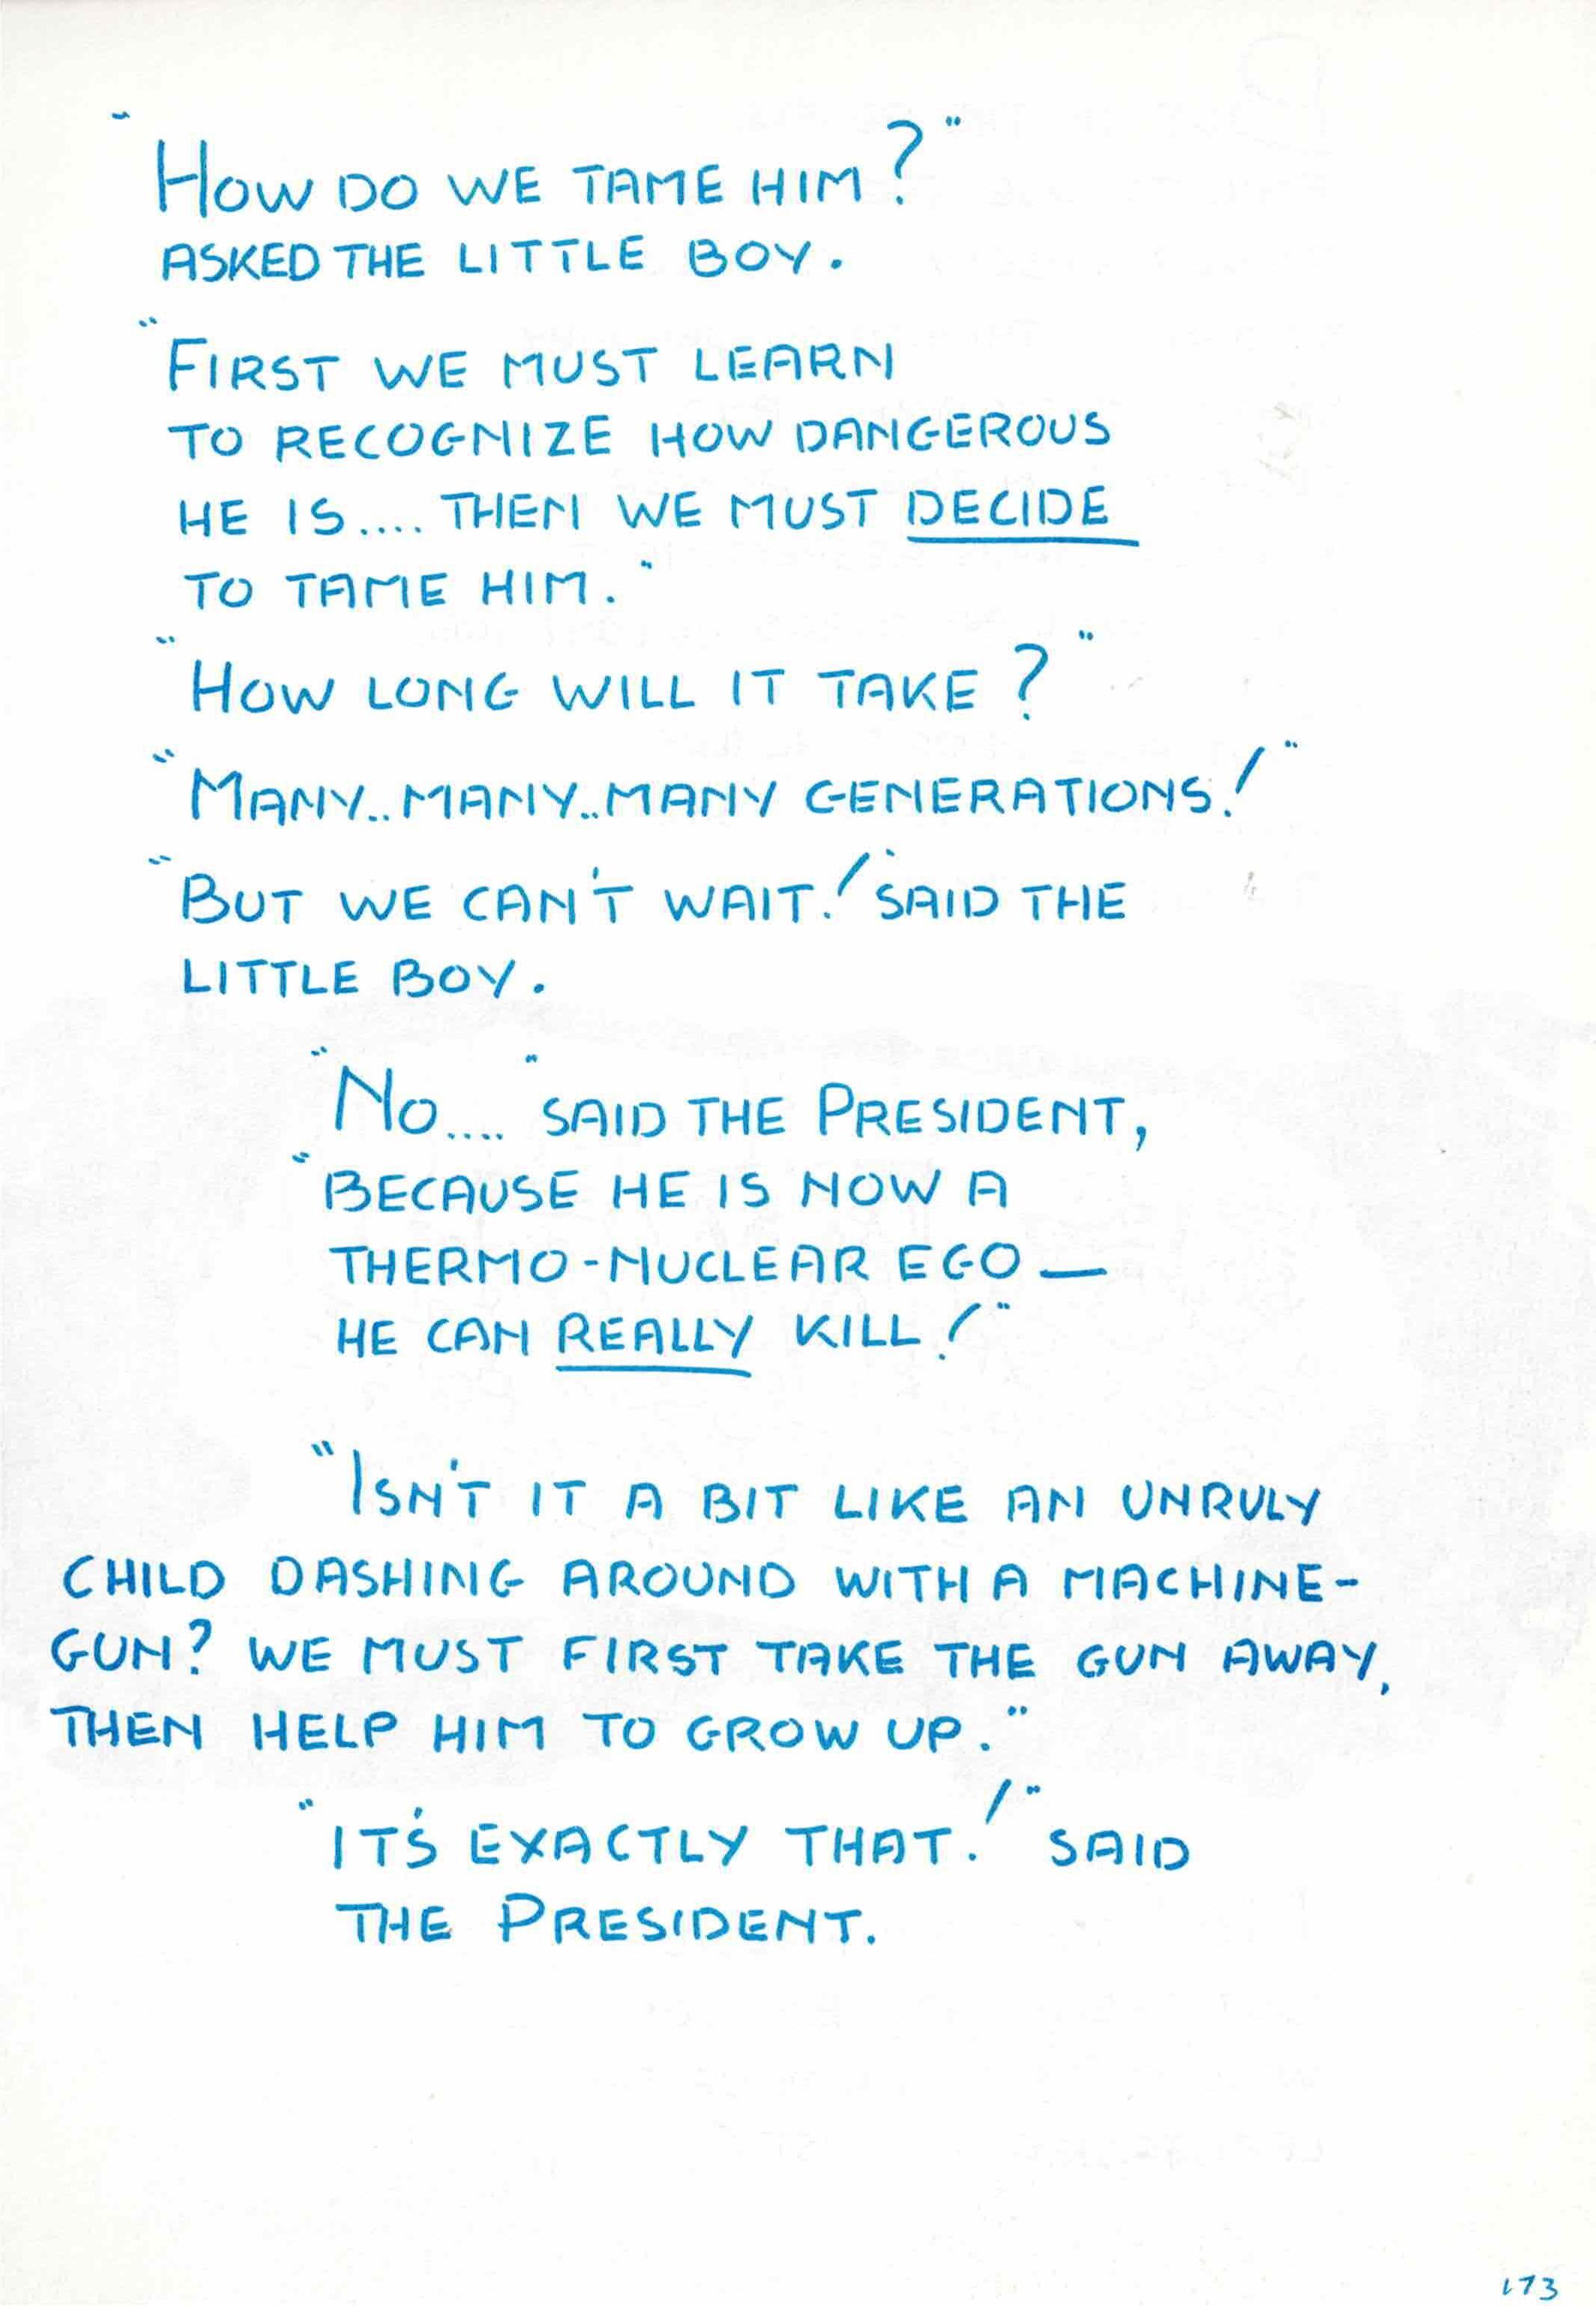 "How DO WE TAME HIM?"
ASKED THE LITTLE BOY.
"FIRST WE MUST LEARN
TO RECOGNIZE HOW DANGEROUS
HE IS.... THEN WE MUST DECIDE
TO TAME HIM."
"HOW LONG WILL IT TAKE?"
"MANY..MANY..MANY GENERATIONS!"
"BUT WE CAN'T WAIT!" SAID THE
LITTLE BOY.
"No...." SAID THE PRESIDENT,
"BECAUSE HE IS NOW A
THERMO-NUCLEAR EGO —
HE CAN REALLY KILL!"
"ISN'T IT A BIT LIKE AN UNRULY
CHILD DASHING AROUND WITH A MACHINE-
GUN? WE MUST FIRST TAKE THE GUN AWAY,
THEN HELP HIM TO GROW UP."
"IT'S EXACTLY THAT!" SAID
THE PRESIDENT.
173